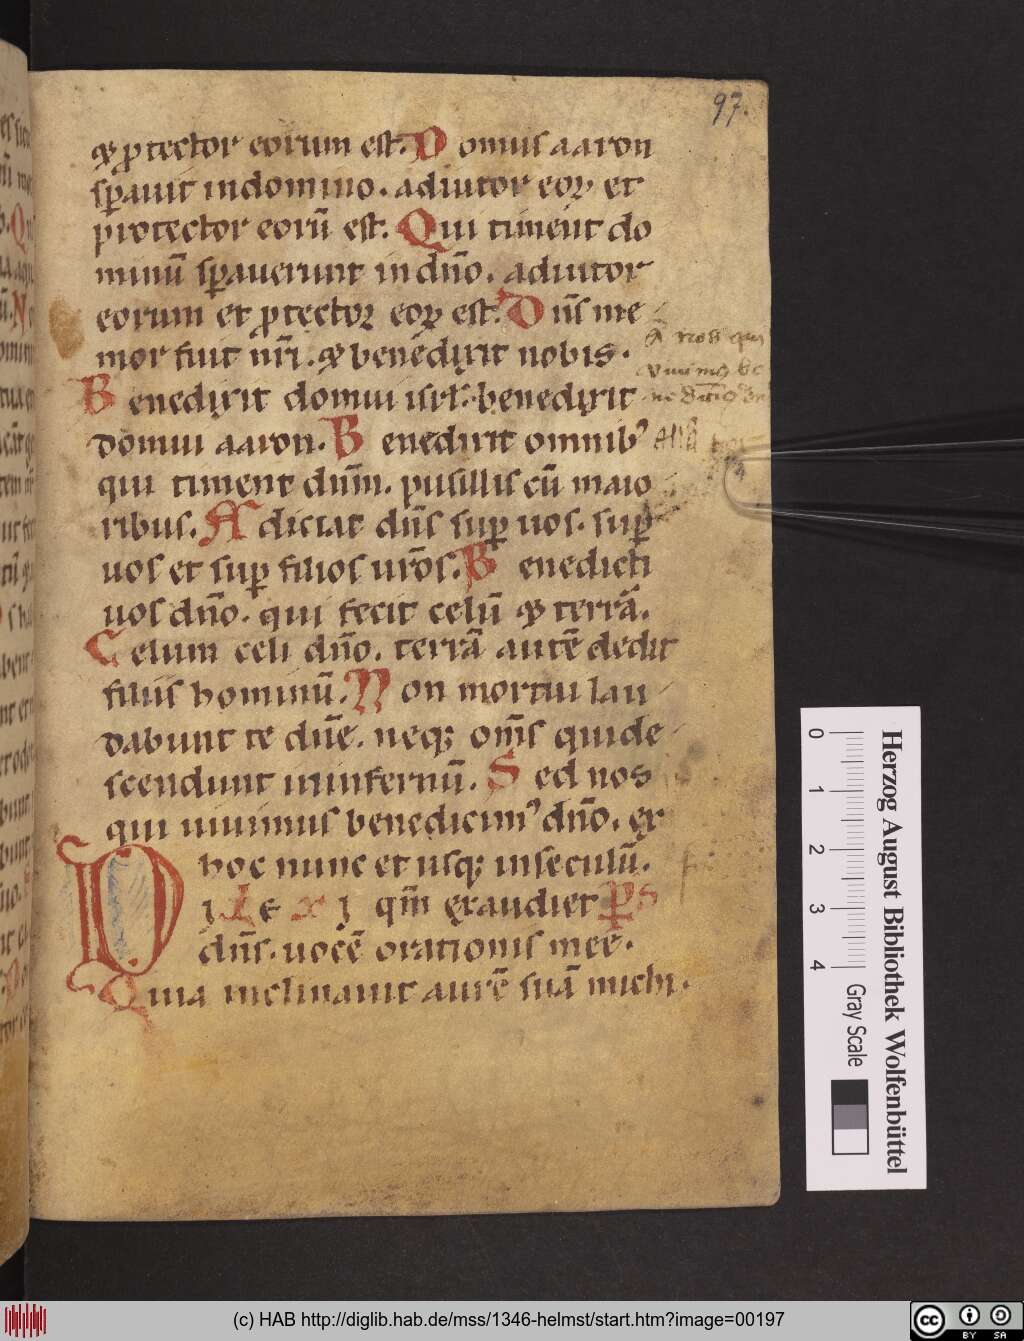 97.
⁊ ꝓtector eorum est. Domus aaron
sꝑauit in domino. adiutor eoꝝ et
protector eorū est. Qui timent do
minū sꝑauerunt in dn̄o. adiutor
eorum et ꝓtectoꝛ eoꝝ est. Dn̄s me
mor fuit nr̄i. ⁊ benedixit nobis.
Benedixit domui isrl̄. benedixit
domui aaron. Benedixit omnibꝰ
qui timent dn̄m. pusillis cū maio
ribus. Adiciat dn̄s suꝑ uos. suꝑ
uos et suꝑ filios ur̄os. Benedicti
uos dn̄o. qui fecit celū ⁊ terrā.
Celum celi dn̄o. terrā autē dedit
filiis hominū. Non mortui lau
dabunt te dn̄e. neqꝫ om̄s qui de
scendunt in infernū. Sed nos
qui uiuimus benedicimꝰ dn̄o. ex
hoc nunc et usqꝫ in seculū.
Dilexi qm̄ exaudiet P̄S
dn̄s. uocē orationis mee.
Quia inclinauit aurē suā michi.
A nos qui
viuimꝰ be
0
1
2
3
4
Gray Scale
Herzog August Bibliothek Wolfenbüttel
(c) HAB http://diglib.hab.de/mss/1346-helmst/start.htm?image=00197
cc BY SA